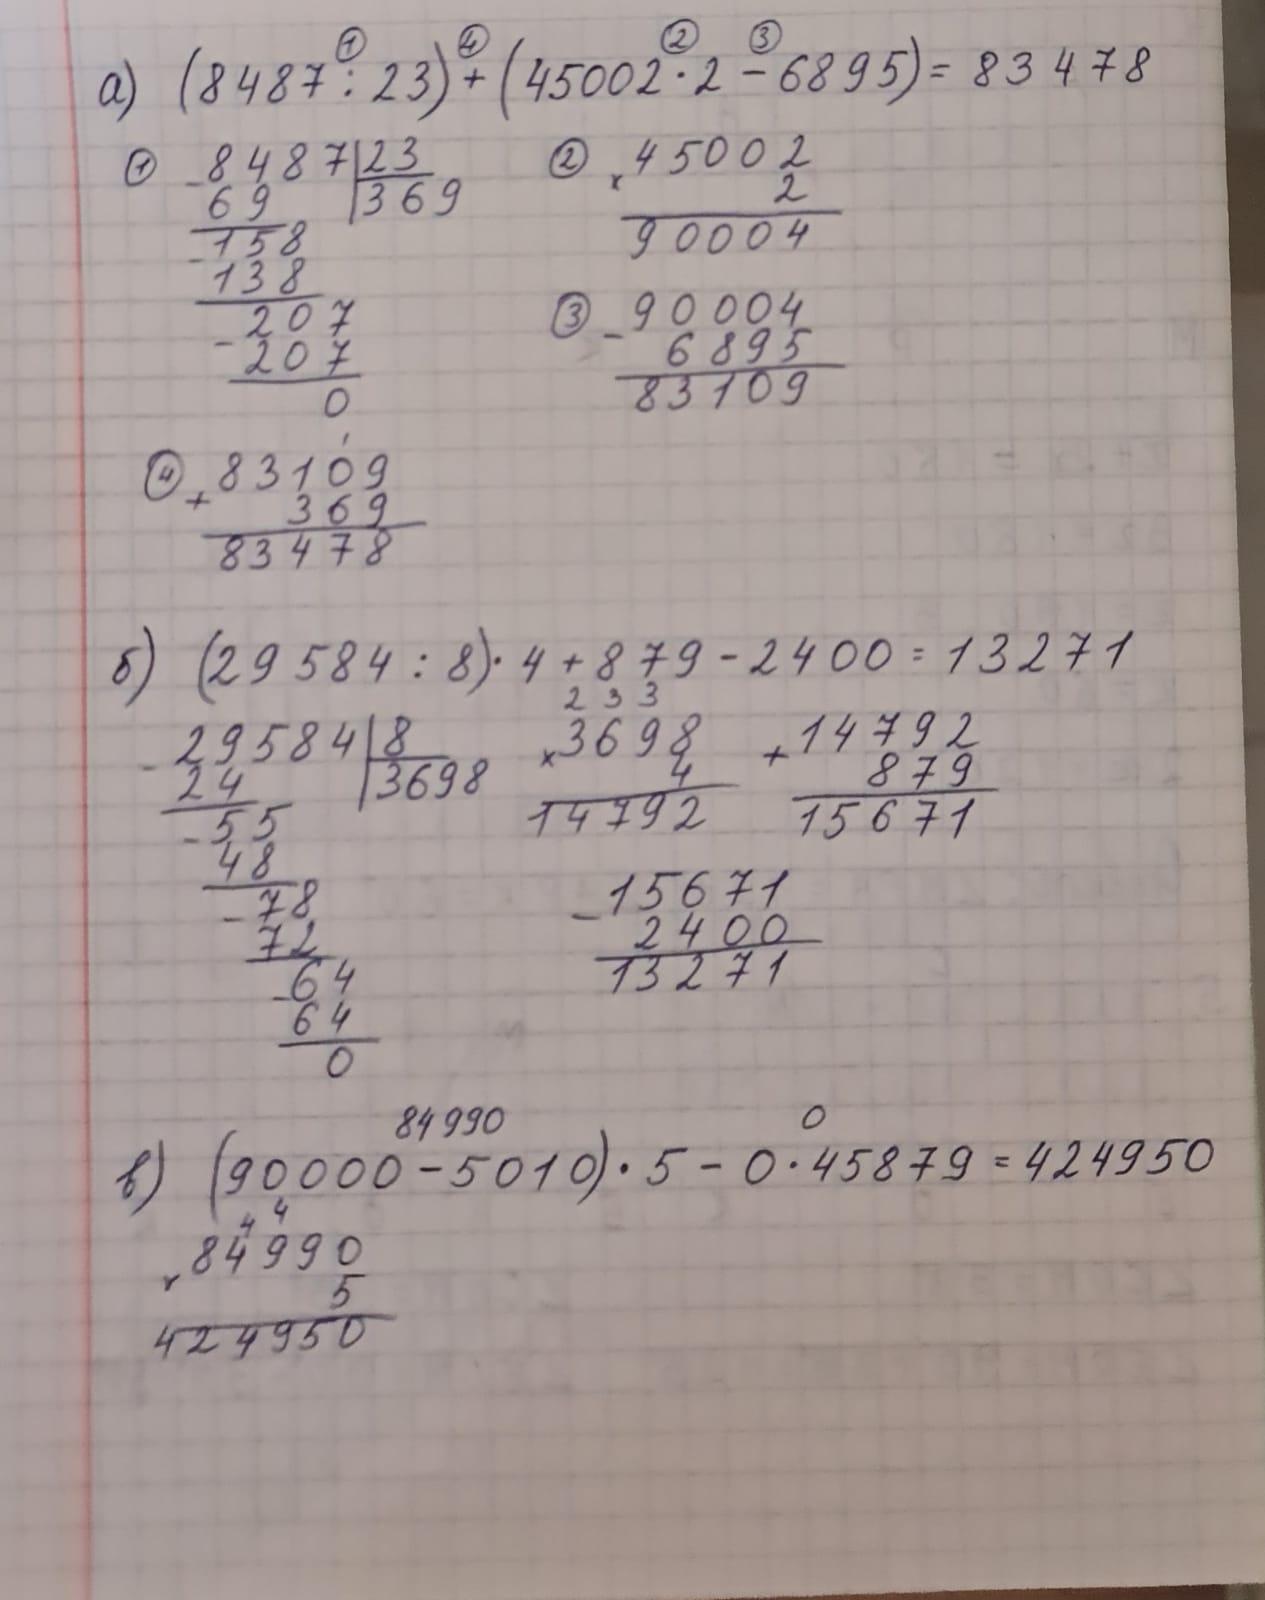 ① ④ ② ③
а) (8487 : 23) + (45002 · 2 − 6895) = 83478
① 8487 | 23 ② 45002
− 69 | 369 × 2
− 158 90004
138
− 207 ③ − 90004
207 6895
0 83109
④ + 83109
369
83478
б) (29584 : 8) · 4 + 879 − 2400 = 13271
2 3 3
− 29584 | 8 × 3698 + 14792
24 | 3698 4 879
− 55 14792 15671
48
− 78 − 15671
72 2400
− 64 13271
64
0
84990 0
в) (90000 − 5010) · 5 − 0 · 45879 = 424950
4 4
× 84990
5
424950